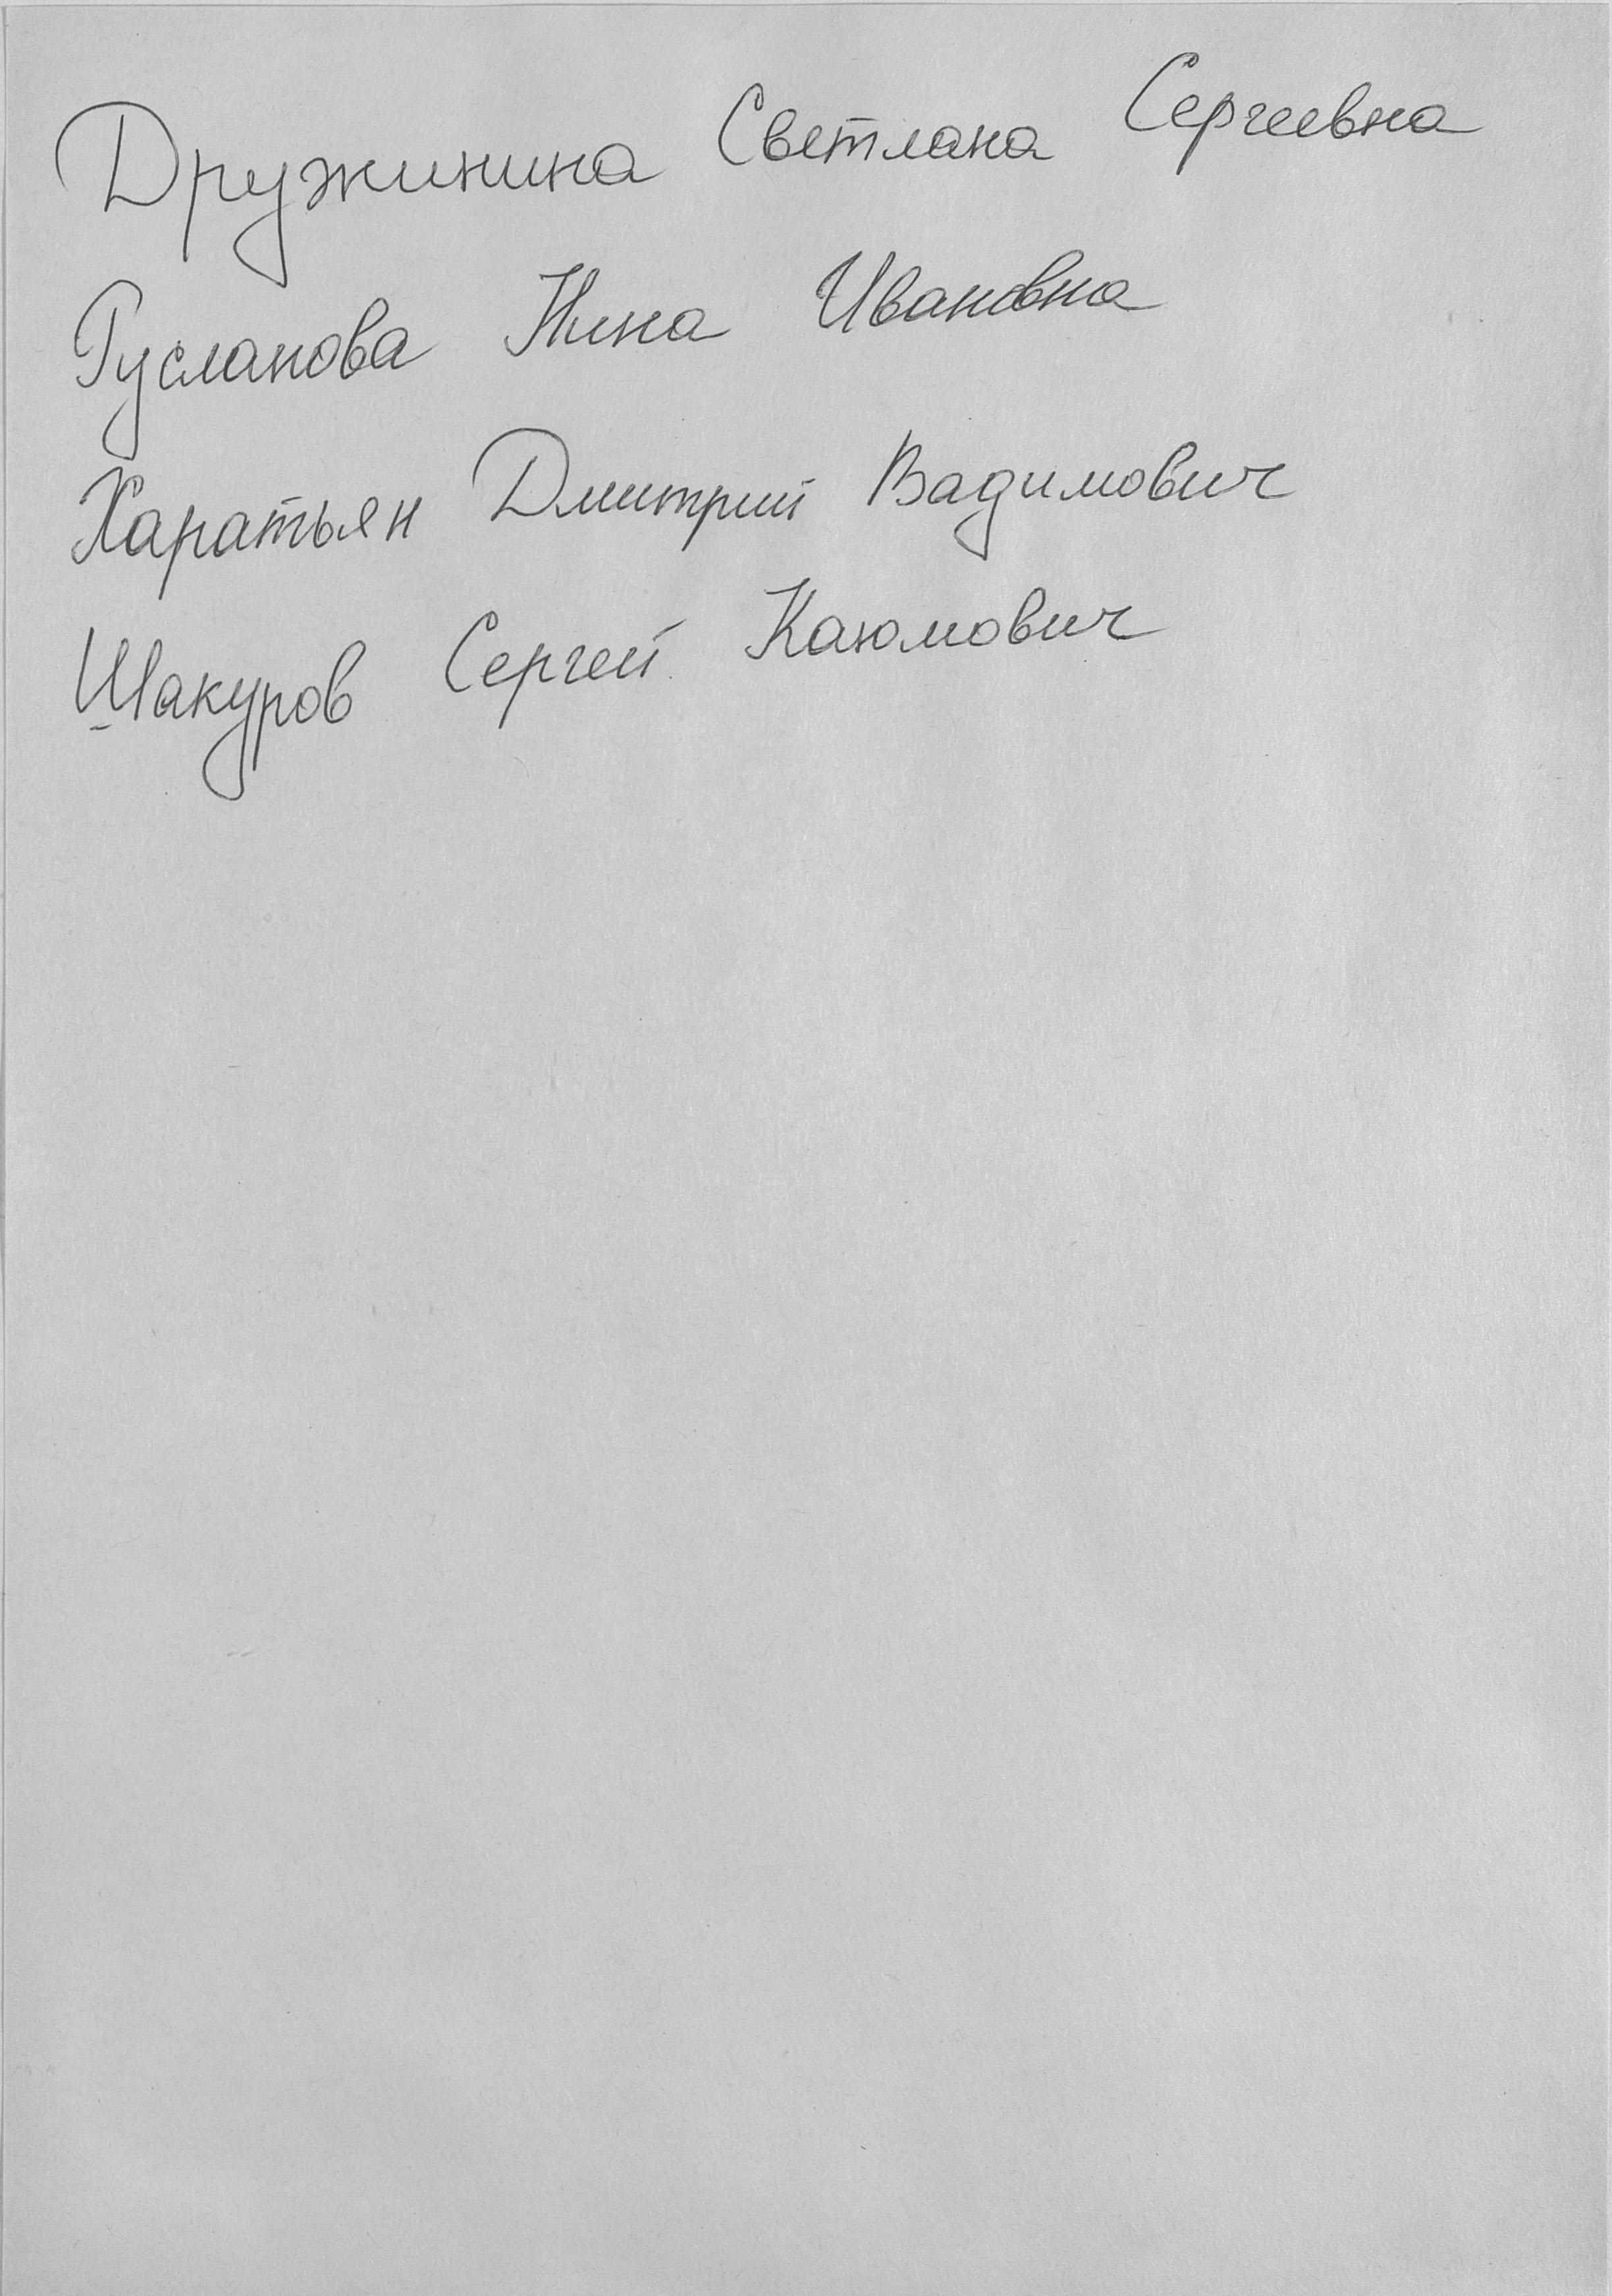 Дружинина Светлана Сергеевна
Русланова Нина Ивановна
Харатьян Дмитрий Вадимович
Шакуров Сергей Каюмович